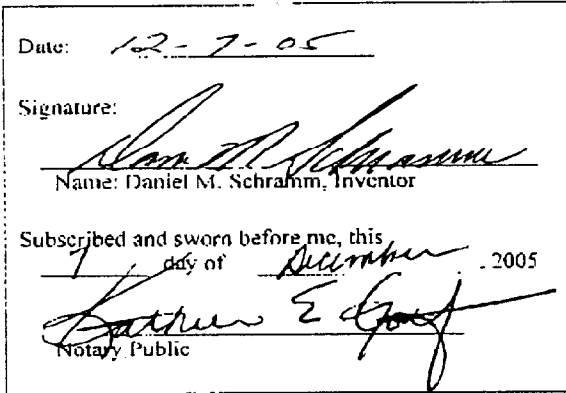 Date: 12-7-05
Signature:
Name: Daniel M. Schramm, Inventor
Subscribed and sworn before me, this
7 day of December, 2005
Kathleen E
Notary Public